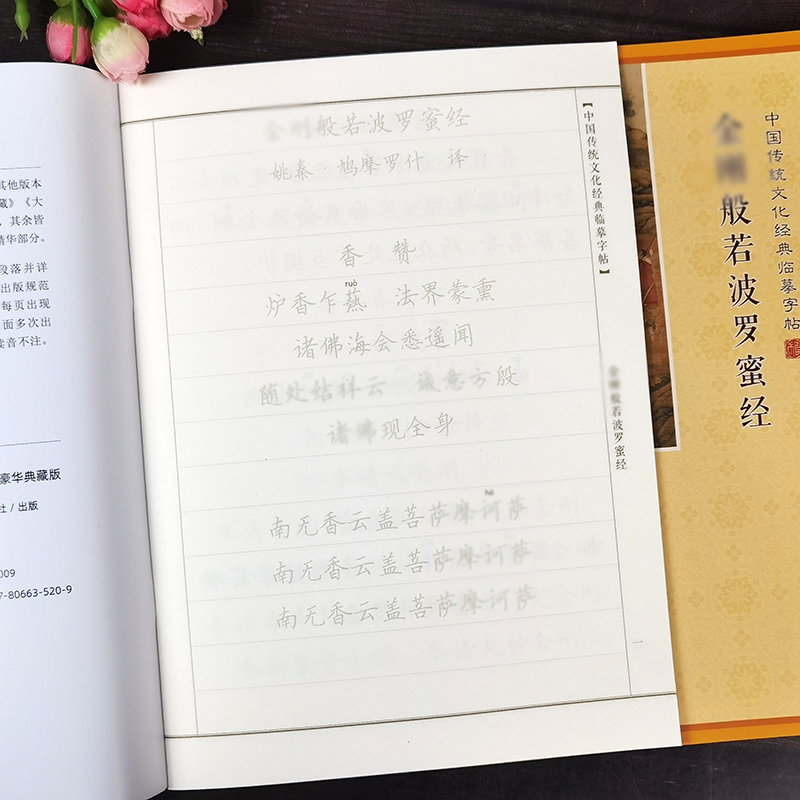 其他版本
藏》《大
，其余皆
精华部分。
段落并详
出版规范
每页出现
面多次出
读音不注。
豪华典藏版
社 / 出版
009
7-80663-520-9
金刚般若波罗蜜经
姚秦·鸠摩罗什 译
香 赞
ruò
炉香乍爇 法界蒙熏
诸佛海会悉遥闻
随处结祥云 诚意方殷
诸佛现全身
南无香云盖菩萨摩诃萨
南无香云盖菩萨摩诃萨
南无香云盖菩萨摩诃萨
【中国传统文化经典临摹字帖】
金刚般若波罗蜜经
一
中国传统文化经典临摹字帖
金刚般若波罗蜜经